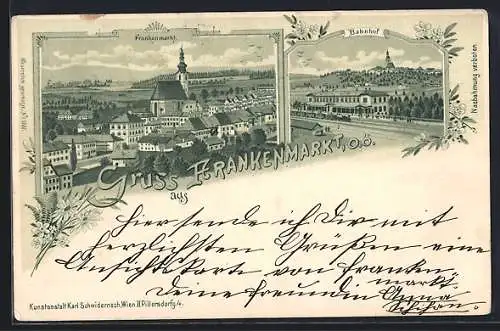 Frankenmarkt.
Bahnhof
Nachahmung verboten.
Gruss aus FRANKENMARKT, O.Ö.
Hier sende ich Dir mit
herzlichsten Grüßen eine
Ansichtskarte von Franken-
markt.
Deine Freundin Anna
Kunstanstalt Karl Schwidernoch, Wien, II Pillersdorfg/4.